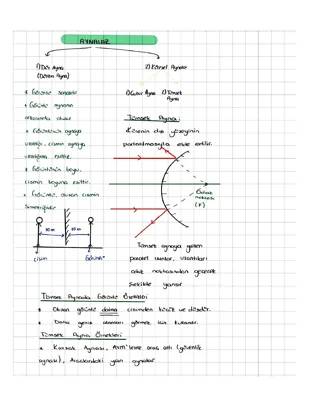 AYNALAR
1) Düz Ayna
(Düzlem Ayna)
2) Küresel Aynalar
* Görüntü sanaldır
* Görüntü aynanın
arkasında oluşur
* Görüntünün aynaya
uzaklığı, cismin aynaya
uzaklığına eşittir.
* Görüntünün boyu,
cismin boyuna eşittir.
* Görüntü, cismin
simetriğidir
10 m
10 m
Cisim
Görüntü
1) Çukur Ayna
2) Tümsek
Ayna
Tümsek Ayna:
Kürenin dış yüzeyinin
parlatılmasıyla elde edilir.
Odak
noktası
(F)
Tümsek aynaya gelen
paralel ışınlar, uzantıları
odak noktasından geçecek
şekilde yansır.
Tümsek Aynada Görüntü Özellikleri
* Oluşan görüntü daima cisimden küçük ve düzdür.
* Daha geniş alanları görmek için kullanılır.
Tümsek Ayna Örnekleri
* Kavşak Aynası,
aynası), Araçlardaki yan aynalar